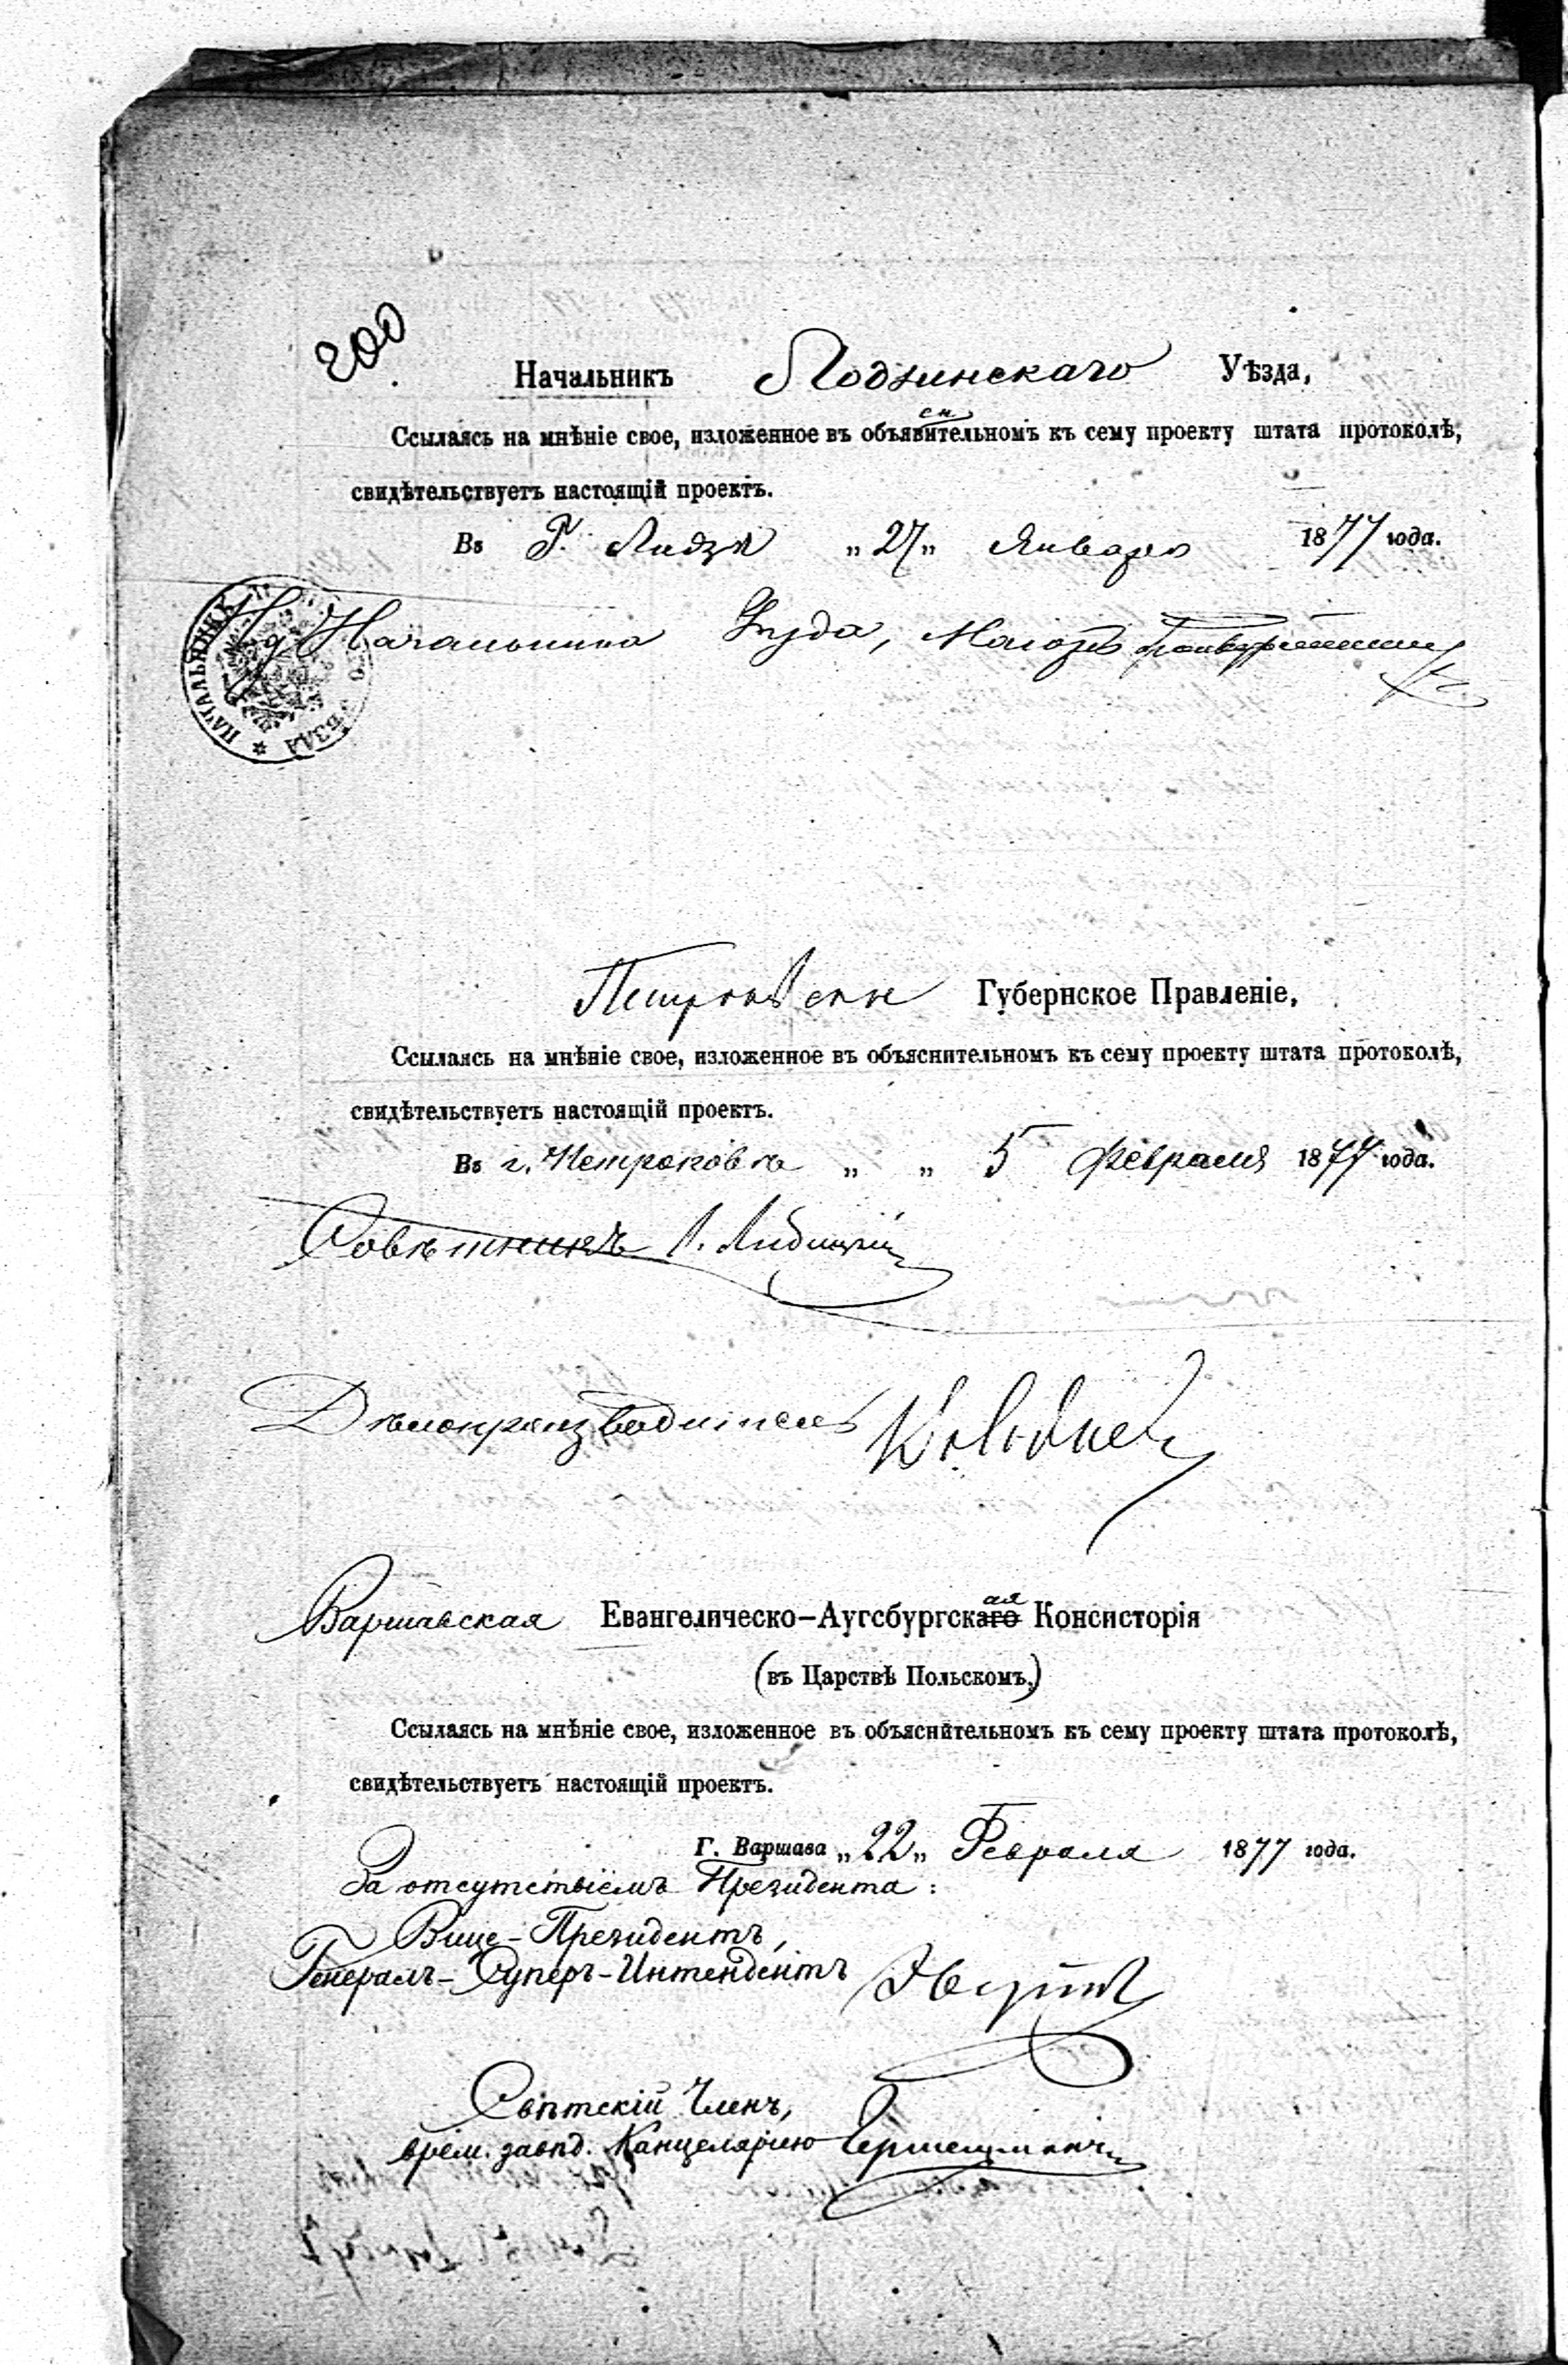 200
Начальникъ Лодзинскаго Уѣзда,
сн
Ссылаясь на мнѣніе свое, изложенное въ объявительномъ къ сему проекту штата протоколѣ,
свидѣтельствуетъ настоящій проектъ.
Въ Г. Лодзи „27„ Января 1877 года.
НАЧАЛЬНИК УѢЗДА
Начальника Уѣзда, Маіоръ
Петроковское Губернское Правленіе,
Ссылаясь на мнѣніе свое, изложенное въ объяснительномъ къ сему проекту штата протоколѣ,
свидѣтельствуетъ настоящій проектъ.
Въ г. Петроковѣ „ „ 5 февраля 1877 года.
Совѣтникъ
Дѣлопроизводитель
Варшавская Евангелическо-Аугсбургскаго ая Консисторія
(въ Царствѣ Польскомъ,)
Ссылаясь на мнѣніе свое, изложенное въ объяснительномъ къ сему проекту штата протоколѣ,
свидѣтельствуетъ настоящій проектъ.
Г. Варшава „22„ Февраля 1877 года.
За отсутствіемъ Президента:
Вице-Президентъ,
Генералъ-Суперъ-Интендентъ
Свѣтскій Членъ,
врем. завѣд. Канцеляріею